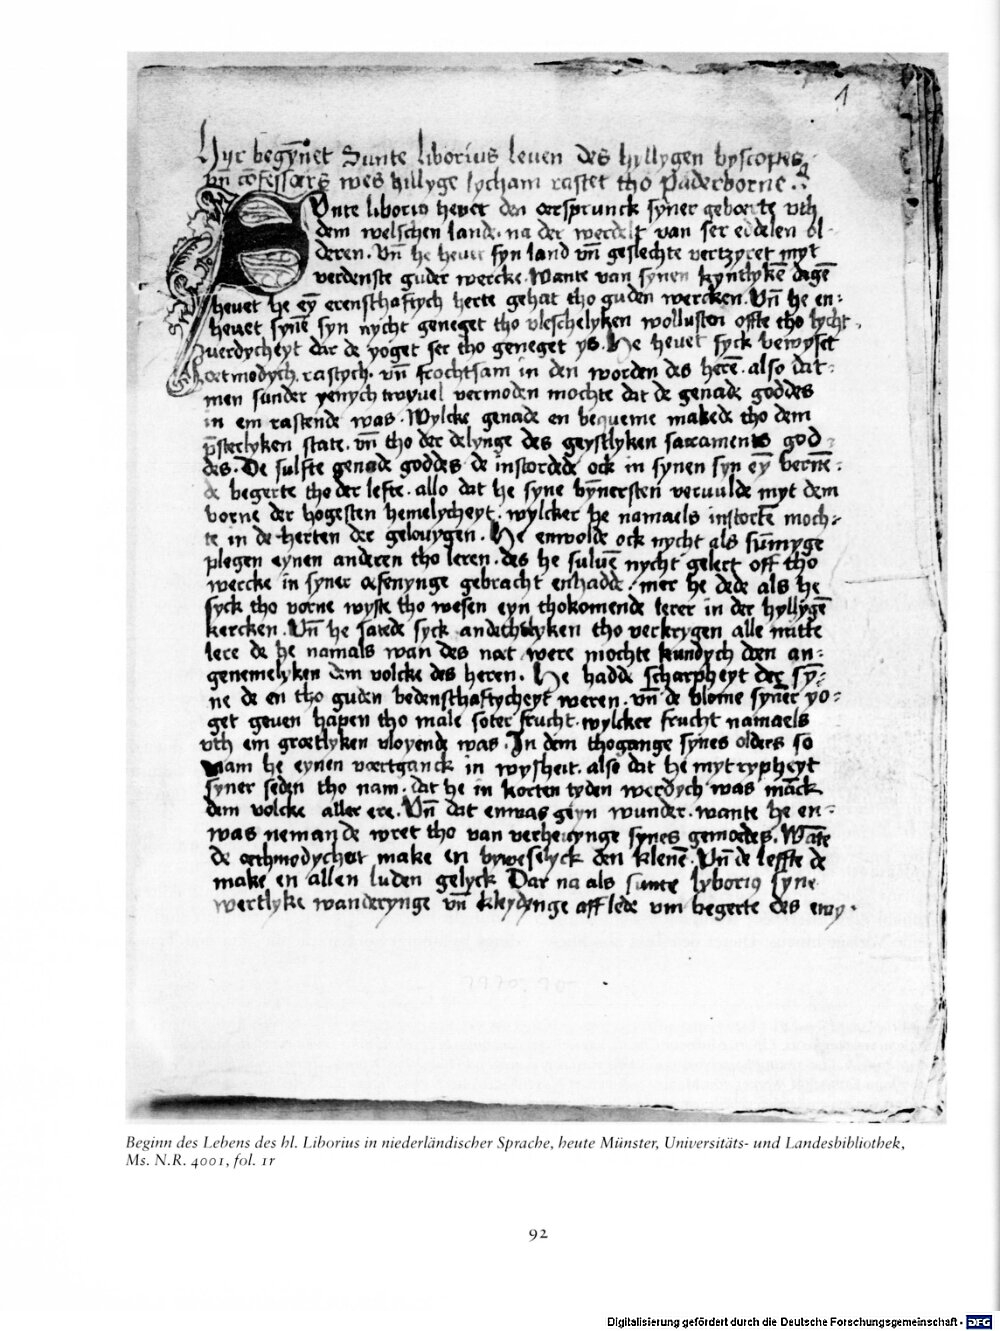 1
Hyr begȳnet Sunte liborius leuen des hyllygen byscopes
vn̄ cōfessoers wes hillyge lycham rastet tho Paderborne.
Sunte liborių heuet den oersprunck syner geboerte vth
dem welschen lande. na der werdelt van ser eddelen ol-
deren. Vn̄ he heuet syn land vn̄ geslechte vertzyret myt
verdenste guder wercke. Wante van synen kyntlykē dagē
heuet he eȳ ernsthaftych herte gehat tho guden wercken. Vn̄ he en:
heuet synē syn nycht geneget tho vleschelyken wollusten offte tho lycht
uerdycheyt dar de yoget ser tho geneget ys. He heuet syck bewyset
oetmodych. rastych. vn̄ frochtsam in den worden des herē. also dat-
men sunder yenych twyuel vermoden mochte dat de genade goddes
in em rastende was. Wylcke genade en bequeme makede tho dem
p̄sterlyken state. vn̄ tho der delynge des geystlyken sacraments god-
des. De sulfte genade goddes de instordede ock in synen syn eȳ bernē:
de begerte tho der lefte. allo dat he syne bȳnersten veruulde myt dem
borne der hogesten hemelycheyt. wylcker he namaels instortē moch-
te in de herten der gelouygen. He enwolde ock nycht als sūmyge
plegen eynen anderen tho leren. des he suluē nycht gelert off tho
wercke in syner oefenynge gebracht enhadde. mer he dede als he
syck tho vorne wyste tho wesen eyn thokomende lerer in der hyllygē
kercken. Vn̄ he satede syck andechtlyken tho verkrygen alle nutte
lere de he namals wan des noet were mochte kundych doen an-
genemelyken dem volcke des heren. He hadde scharpheyt der sȳ-
ne de en tho guden bedensthaftycheyt weren. vn̄ de blome syner yo-
get geuen hapen tho male soter frucht. wylcker frucht namaels
vth em groetlyken vloyende was. In dem thogange synes olders so
nam he eynen voertganck in wysheit. also dat he myt rypheyt
syner seden tho nam. dat he in korten tyden werdych was māck
dem volcke aller ere. Vn̄ dat enwas geyn wunder. wante he en-
was nemande wret tho van verheuynge synes gemoedes. Wāte
de oethmodychet make en byweselyck den klenē. Vn̄ de leffte de
make en allen luden gelyck Dar na als sunte lyborių syne
wertlyke wanderynge vn̄ kleydynge afflede vm begerte des ewy-
Beginn des Lebens des hl. Liborius in niederländischer Sprache, heute Münster, Universitäts- und Landesbibliothek,
Ms. N.R. 4001, fol. 1r
92
Digitalisierung gefördert durch die Deutsche Forschungsgemeinschaft - DFG